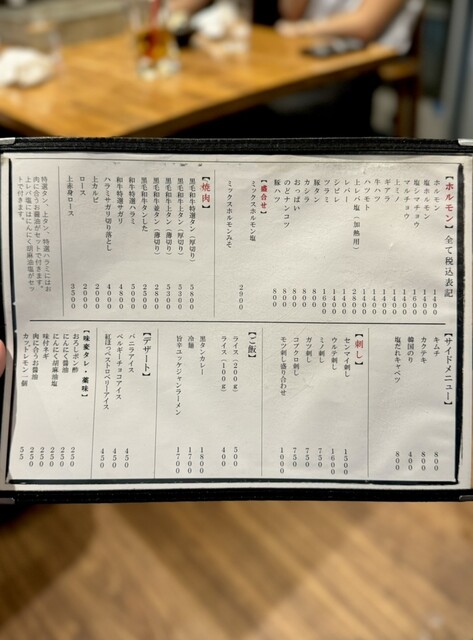 【ホルモン】全て税込表記
ホルモン 1400
塩ホルモン 1400
塩シマチョウ 1600
マルチョウ 1400
上ミノ
ギアラ
牛ハツ
ハツモト
上レバ塩(加熱用)
レバー
シビレ
フラミ
豚タン
カシラ 800
おっぱい 800
のどナンコツ 800
豚ハツ 800
【盛合せ】
ミックスホルモン塩
ミックスホルモンみそ 2900
【焼肉】
黒毛和牛特選タン(厚切り) 5800
黒毛和牛上タン(厚切り)
黒毛和牛上タン(薄切り)
黒毛和牛並タン(薄切り) 2800
黒毛和牛タンした 2500
和牛特選ハラミ 5000
和牛特選サガリ 4800
ハラミサガリ切り落とし 4000
上カルビ
ロース
上赤身ロース 3500
特選タン、上タン、特選ハラミにはお
肉に合うお醤油がセットで付きます。
上レバ塩にはにんにく胡麻油塩がセッ
トで付きます。
【サイドメニュー】
キムチ 800
カクテキ 800
韓国のり 400
塩だれキャベツ 800
【刺し】
センマイ刺し 1500
ウルテ刺し 1600
ミノ刺し 750
ガツ刺し 750
コブクロ刺し 750
モツ刺し盛り合わせ 1000
【ご飯】
ライス(200g) 500
ライス(100g) 400
黒タンカレー 1800
冷麺 1700
旨辛ユッケジャンラーメン 1700
【デザート】
バニラアイス 450
ベルギーチョコアイス 450
紅ほっぺストロベリーアイス 450
【味変タレ・薬味】
おろしポン酢 250
にんにく醤油 250
にんにく胡麻油塩 250
味付ネギ 250
肉に合うお醤油 250
カットレモン一個 55